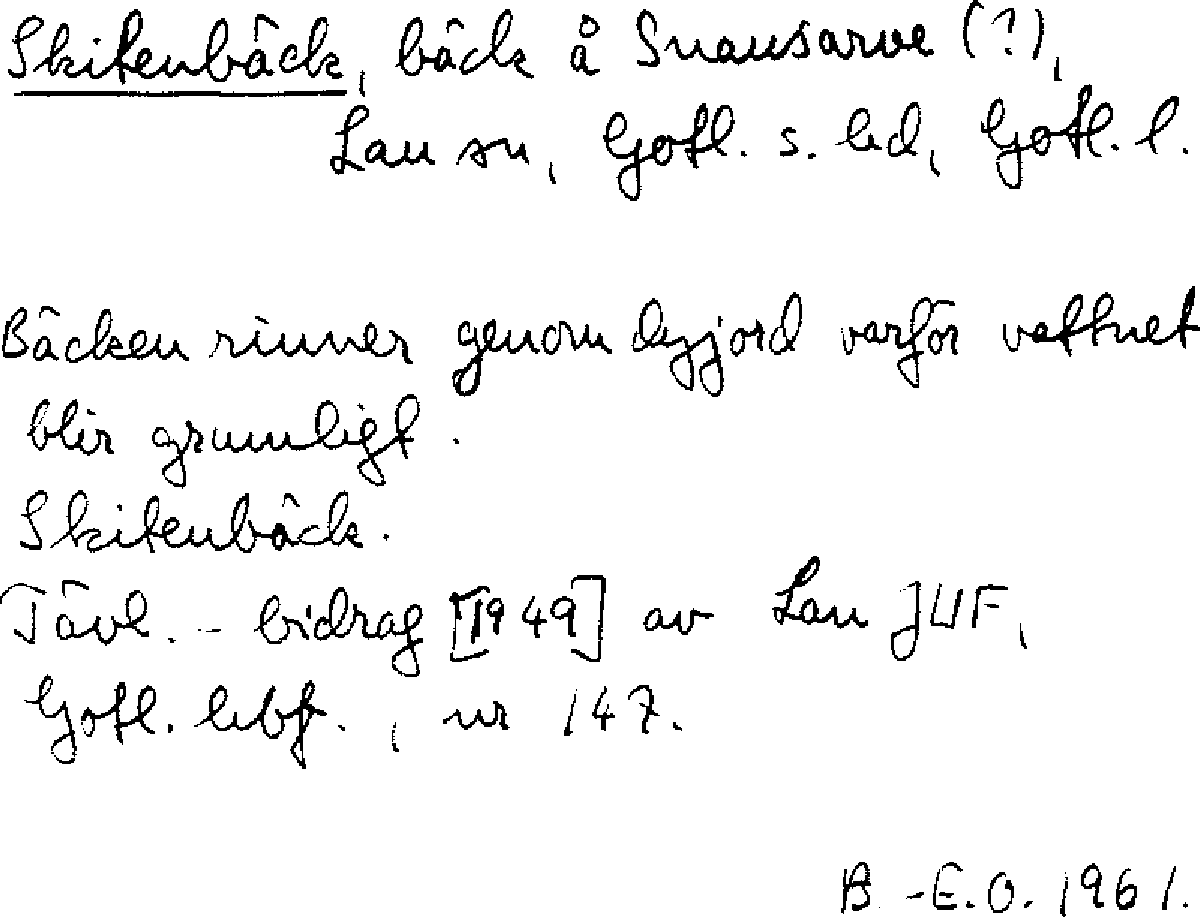 Skitenbäck, bäck å Snausarve (?),
Lau sn, Gotl. s. hd, Gotl. l.
Bäcken rinner genom dyjord varför vattnet
blir grumligt.
Skitenbäck.
Tävl.-bidrag [1949] av Lau JUF,
Gotl. hbf., nr 147.
B.-E.O. 1961.